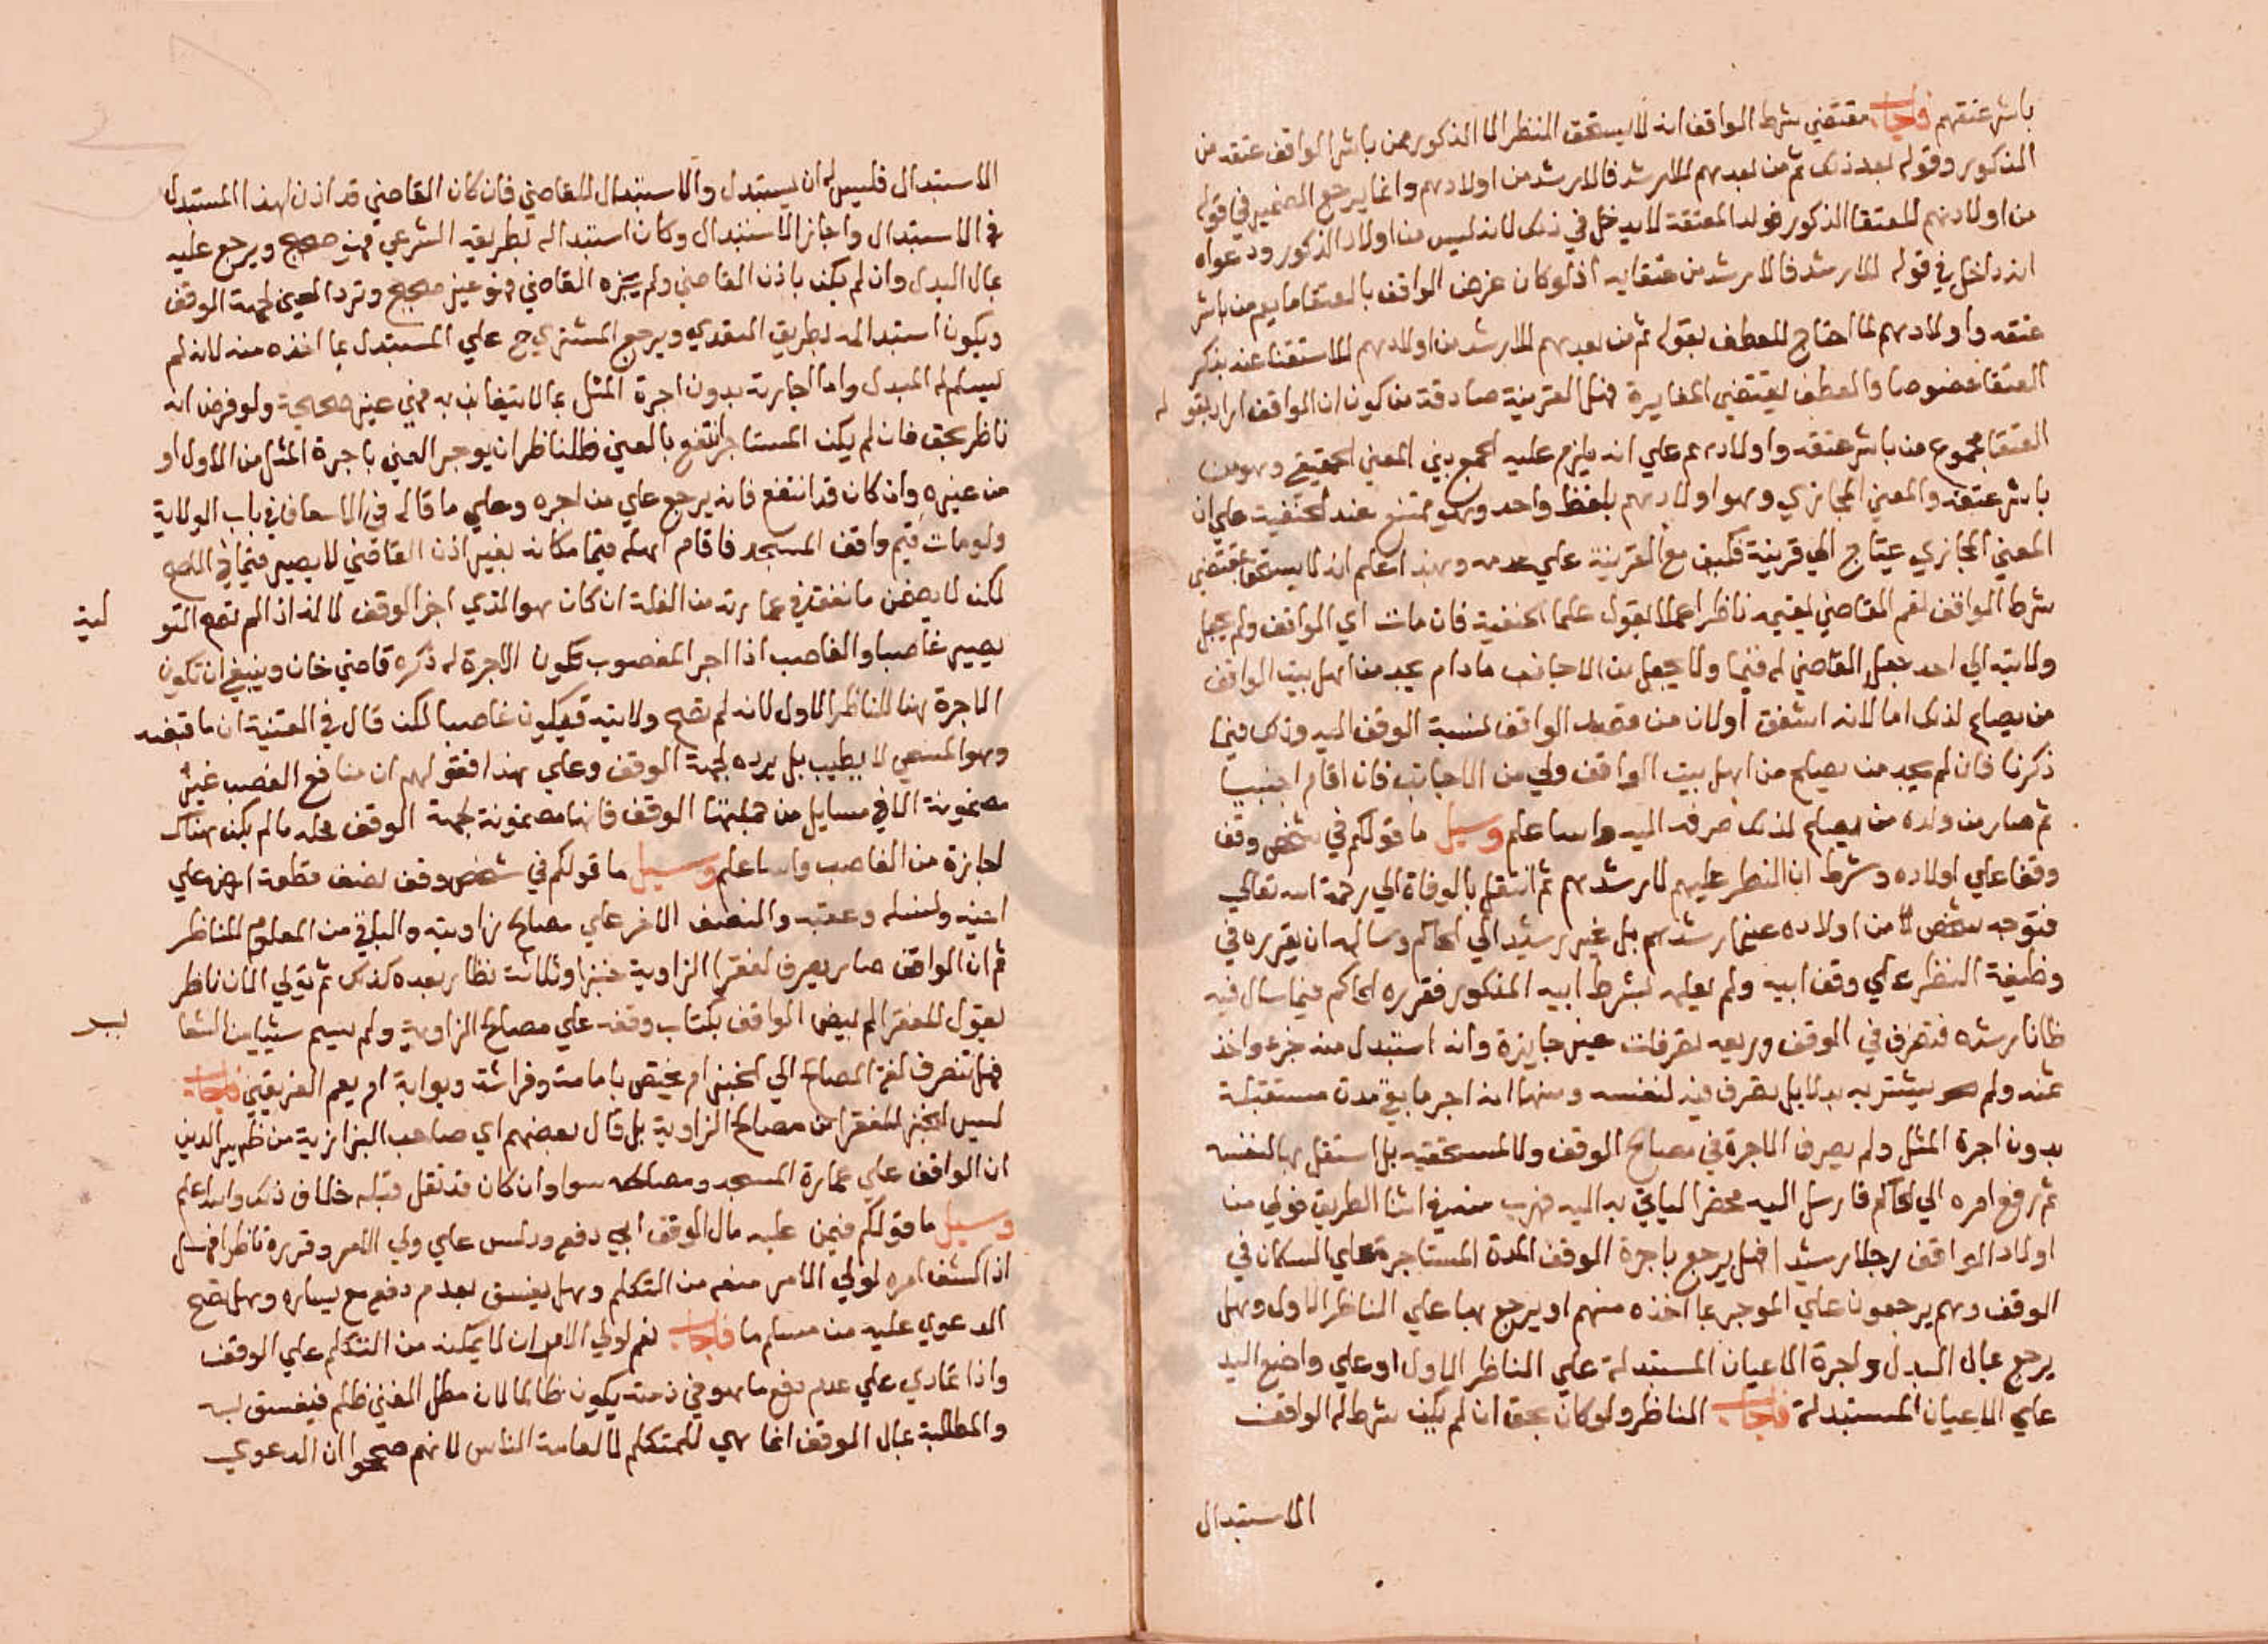 باشر عتقهم فاجاب مقتضي شرط الواقف انه لا يستحق النظر الا الذكور ممن باشر الواقف عتقه من
المذكور وقوله بعد ذلك ثم من بعدهم للارشد فالارشد من اولادهم وانما يرجع الضمير في قوله
من اولادهم للعتقا الذكور فولد المعتقة لا يدخل في ذلك لانه ليس من اولاد الذكور ودعواه
انه داخل في قوله للارشد فالارشد من عتقايه اذ لو كان غرض الواقف بالعتقا ما يعم من باشر
عتقه واولادهم لما احتاج للعطف بقوله ثم من بعدهم للارشد من اولادهم للاستغنا عنه بذكر
العتقا خصوصا والعطف يقتضي المغايرة فهل القرينة صادقة من كون ان الواقف اراد بقوله
العتقا مجموع من باشر عتقه واولادهم علي انه يلزم عليه الجمع بين المعني الحقيقي وهو من
باشر عتقه والمعني المجازي وهو اولادهم بلفظ واحد وهو ممتنع عند الحنفية علي ان
المعني المجازي يحتاج الي قرينة فكيف مع القرينة علي عدمه وبهذا اعلم انه لا يستحق بمقتضي
شرط الواقف نعم القاضي يقيمه ناظرا عملا بقول علما الحنفية فان مات اي الواقف ولم يجعل
ولايته الي احد جعل القاضي له قيما ولا يجعل من الاجانب ما دام يجد من اهل بيت الواقف
من يصلح لذلك اما لانه اشفق او لان من قصد الواقف نسبة الوقف اليه وذلك فيما
ذكرنا فان لم يجد من يصلح من اهل بيت الواقف ولي من الاجانب فان اقام اجنبيا
ثم صار من ولده من يصلح لذلك صرفه اليه والله اعلم وسيل ما قولكم في شخص وقف
وقفا علي اولاده وشرط ان النظر عليهم لارشدهم ثم انتقل بالوفاة الي رحمة الله تعالي
فتوجه شخص من اولاده غير ارشدهم بل غير رشيد الي الحاكم وساله ان يقرره في
وظيفة النظر علي وقف ابيه ولم يعلمه بشرط ابيه المذكور فقرره الحاكم فيما سال فيه
ظانا رشده فتصرف في الوقف وريعه تصرفات غير جايزة وانه استبدل منه جزء واخذ
ثمنه ولم يشتر به بدلا بل تصرف فيه لنفسه ومنها انه اجر ما بقي مدت مستقبلة
بدون اجرة المثل ولم يصرف الاجرة في مصالح الوقف ولا لمستحقيه بل استقل بها لنفسه
ثم رفع امره الي الحاكم فارسل اليه محضرا لياتي به اليه فهرب منه في اثنا الطريق فولي من
اولاد الواقف رجلا رشيدا فهل يرجع باجرة الوقف المدة المستاجرة علي السكان في
الوقف وهم يرجعون علي الموجر بما اخذه منهم او يرجع بها علي الناظر الاول وهل
يرجع بمال البدل واجرة الاعيان المستبدلة علي الناظر الاول او علي واضع اليد
علي الاعيان المستبدلة فاجاب الناظر ولو كان بحق ان لم يكن شرط له الواقف
الاستبدال
الاستبدال فليس له ان يستبدل والاستبدال للقاضي فان كان القاضي قد اذن لهذا المستبدل
في الاستبدال واجاز الاستبدال وكان استبداله بطريقه الشرعي فهو صحيح ويرجع عليه
بمال البدل وان لم يكن باذن القاضي ولم يجزه القاضي فهو غير صحيح وترد العين لجهة الوقف
ويكون استبداله بطريق التعدي ويرجع المشتري ح علي المستبدل بما اخذه منه لانه لم
يسلم له المبدل واما اجارته بدون اجرة المثل بما لا يتغابن به فهي غير صحيحة ولو فرض انه
ناظر بحق فان لم يكن المستاجر انتفع بالعين فللناظر ان يوجر العين باجرة المثل من الاول او
من غيره وان كان قد انتفع فانه يرجع علي من اجره وعلي ما قاله في الاسعاف في باب الولاية
ولو مات قيم واقف المسجد فاقام اهله قيما مكانه بغير اذن القاضي لا يصير قيما في الاصح
لكن لا يضمن ما نفقه في عمارته من الغلة ان كان هو الذي اجر الوقف لانه اذا لم تصح التو
لية
يصير غاصبا والغاصب اذا اجر المغصوب تكون الاجرة له ذكره قاضي خان وينبغي ان تكون
الاجرة هنا للناظر الاول لانه لم تصح ولايته فيكون غاصبا لكن قال في القنية ان ما قبضه
وهو المسمي لا يطيب بل يرده لجهة الوقف وعلي هذا فقولهم ان منافع الغصب غير
مضمونة الا في مسايل من جملتها الوقف فانها مضمونة لجهة الوقف محله ما لم يكن هناك
اجازة من الغاصب والله اعلم وسيل ما قولكم في شخص وقف نصف قطعة ارض علي
اخيه ونسله وعقبه والنصف الاخر علي مصالح زاويته والباقي من المعلوم للناظر
ثم ان الواقف صار يصرف لفقرا الزاوية خبزا وثلاثة نظار بعده كذلك ثم تولي الان ناظر
يقول للفقرا لم ينص الواقف بكتاب وقفه علي مصالح الزاوية ولم يسم شيا من الشعا
ير
فهل تنصرف لفظة المصالح الي الخبز ام يختص بامامة وفراشة وبوابة ام يعم الفريقين فاجاب
ليس الخبز للفقرا من مصالح الزاوية بل قال بعضهم اي صاحب البزازية من ظهير الدين
ان الواقف علي عمارة المسجد ومصالحه سوا وان كان قد نقل قبله خلاف ذلك والله اعلم
وسيل ما قولكم فيمن عليه مال الوقف ابي دفع ودلس علي ولي الامر وقرره ناظرا فهل
اذا كشف امره لولي الامر منعه من التكلم وهل يفسق بعدم دفع مع يساره وهل تصح
الدعوي عليه من مسلم ما فاجاب نعم لولي الامر ان لا يمكنه من التكلم علي الوقف
واذا تمادي علي عدم دفع ما هو في ذمته يكون ظالما لان مطل الغني ظلم فيفسق به
والمطالبة بمال الوقف انما هي للمتكلم لا لعامة الناس لانهم صححوا ان الدعوي